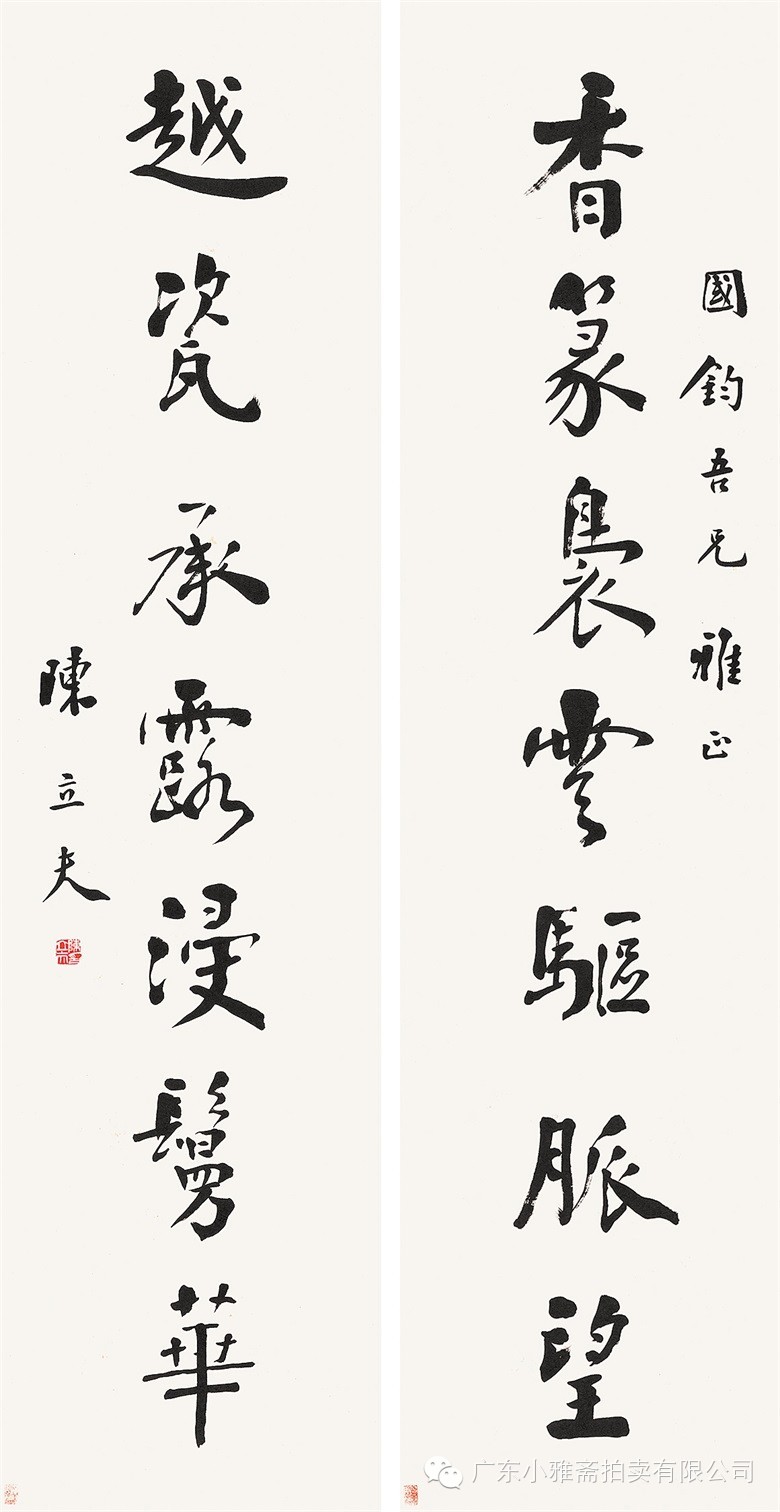 國鈞吾兄雅正
香篆裊雲驅脈望
越瓷承露浸鬘華
陳立夫
广东小雅斋拍卖有限公司